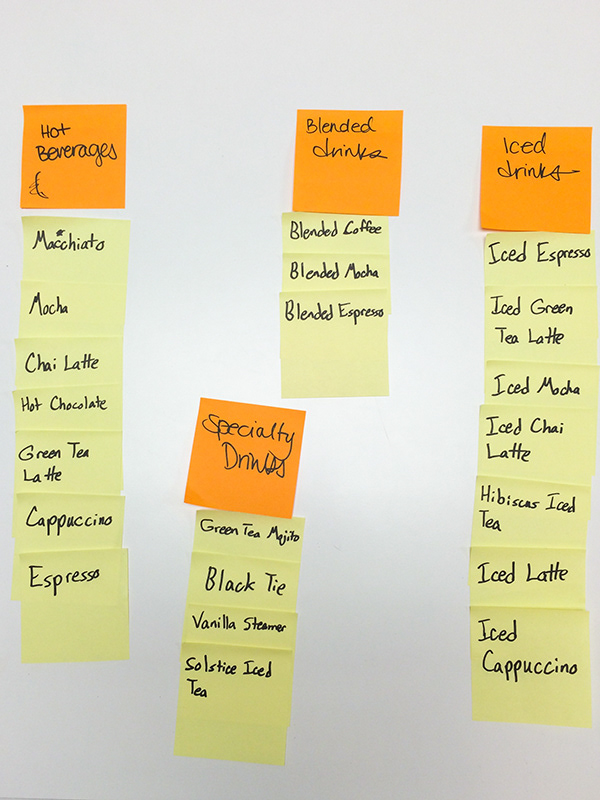 Hot
Beverages
Macchiato
Mocha
Chai Latte
Hot Chocolate
Green Tea
Latte
Cappuccino
Espresso
Blended
drinks
Blended Coffee
Blended Mocha
Blended Espresso
Specialty
Drinks
Green Tea Mojito
Black Tie
Vanilla Steamer
Solstice Iced
Tea
Iced
drinks
Iced Espresso
Iced Green
Tea Latte
Iced Mocha
Iced Chai
Latte
Hibiscus Iced
Tea
Iced Latte
Iced
Cappuccino